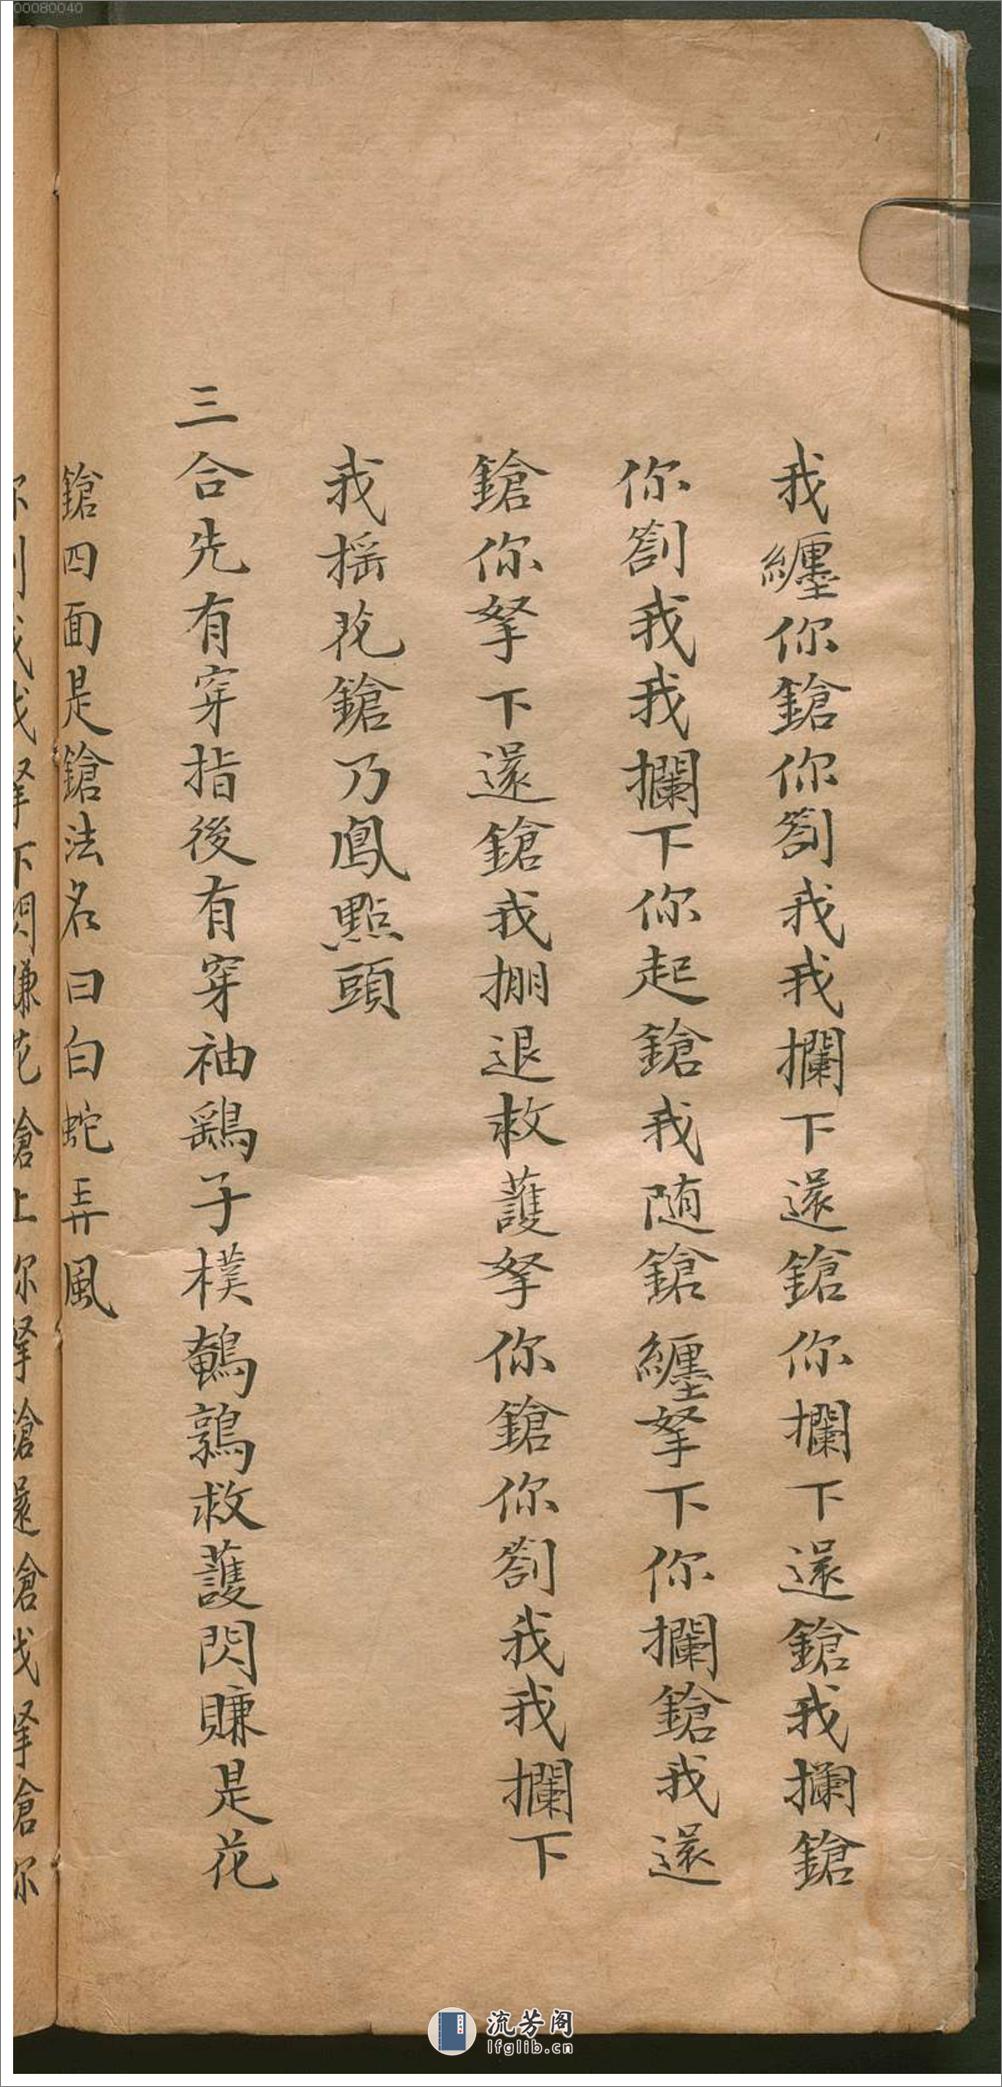 00080040
我纏你鎗你劄我我攔下還鎗你攔下還鎗我攔鎗
你劄我我攔下你起鎗我随鎗纏拏下你攔鎗我還
鎗你拏下還鎗我掤退救護拏你鎗你劄我我攔下
我搖花鎗乃鳳點頭
三合先有穿指後有穿袖鷂子樸鵪鶉救護閃賺是花
鎗四面是鎗法名曰白蛇弄風
你劄我我拏下閃賺花鎗上你拏鎗還鎗我拏鎗你
流芳阁
lfglib.cn